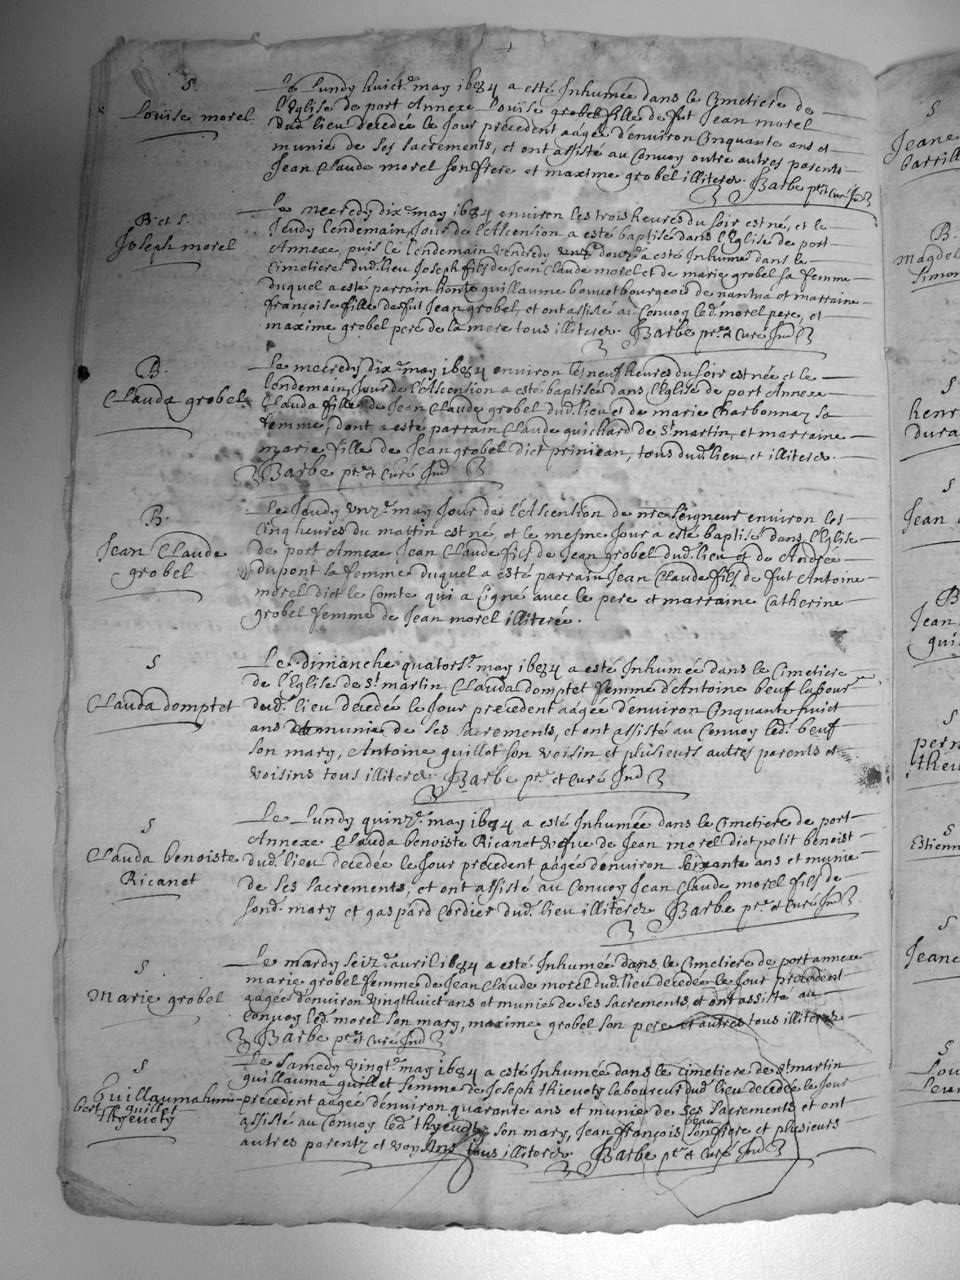 S
Louïse morel
Le Lundy huict.e may 1684 a esté Inhumée dans le Cimetiere de
l'Eglise de port Annexe Louïse grobel fille de fut Jean morel
dud. lieu decedée le Jour precedent aagée d'environ Cinquante ans et
munie de ses sacrements, et ont assisté au Convoy outre autres parents
Jean Claude morel son frere et maxime grobel illiteres. Barbe ptre et Curé Ind
B et S.
Joseph morel
Le mecredy dix.e may 1684 environ les trois heures du soir est né, et le
Jeudy lendemain Jour de l'Ascension a esté baptisé dans l'Eglise de port
Annexe, puis le lendemain vendredy douz.e a esté Inhumé dans le
Cimetiere dud. lieu Joseph fils de Jean Claude morel et de marie grobel sa femme
duquel a esté parrain honte guillaume bouuot bourgeois de nantua et marraine
françoise fille de fut Jean grobel, et ont assisté au Convoy led. morel pere, et
maxime grobel pere de la mere tous illiteres. Barbe ptre et Curé Ind
B.
Clauda grobel
Le mecredy dix.e may 1684 environ les neuf heures du soir est née et le
lendemain Jour de l'Ascension a esté baptisée dans l'Eglise de port Annexe
Clauda fille de Jean Claude grobel dud. lieu et de marie Charbonnay sa
femme, dont a esté parrain Claude guichard de St martin, et marraine
marie fille de Jean grobel dict prinjean, tous dud. lieu et illiteres.
Barbe ptre et Curé Ind
B.
Jean Claude
grobel
Le Jeudy unz.e may Jour de l'Ascension de nre seigneur environ les
Cinq heures du mattin est né, et le mesme Jour a esté baptisé dans l'Eglise
de port Annexe Jean Claude fils de Jean grobel dud. lieu et de Andrée
dupont sa femme duquel a esté parrain Jean Claude fils de fut Antoine
morel dict le Comte qui a signé avec le pere et marraine Catherine
grobel femme de Jean morel illiterée.
S
Clauda domptet
Le dimanche quators.e may 1684 a esté Inhumée dans le Cimetiere
de l'Eglise de St martin Clauda domptet femme d'Antoine beuf labour
dud. lieu decedée le Jour precedent aagée d'environ Cinquante huict
ans munie de ses sacrements, et ont assisté au Convoy led. beuf
son mary, Antoine guillot son voisin et plusieurs autres parents et
voisins tous illiteres Barbe ptre et Curé Ind
S
Clauda benoiste
Ricanet
Le Lundy quinz.e may 1684 a esté Inhumée dans le Cimetiere de port
Annexe Clauda benoiste Ricanet vefue de Jean morel dict petit benoist
dud. lieu decedée le Jour precedent aagée d'environ soixante ans et munie
de ses sacrements, et ont assisté au Convoy Jean Claude morel fils de
sond. mary et gaspard Cordier dud. lieu illiteres Barbe ptre et Curé Ind
S
Marie grobel
Le mardy seiz.e avril 1684 a esté Inhumée dans le Cimetiere de port annexe
marie grobel femme de Jean Claude morel dud. lieu decedée le Jour precedent
aagée d'environ vingthuict ans et munie de ses sacrements et ont assisté au
Convoy led. morel son mary, maxime grobel son pere et autres tous illiteres
Barbe ptre et Curé Ind
S
Guillauma
quillet
Thyevoty
Le samedy vingt.e may 1684 a esté Inhumée dans le cimetiere de St martin
guillauma quillet femme de Joseph thievoty laboureur dud. lieu decedée le Jour
precedent aagée d'environ quarante ans et munie de ses sacrements et ont
assisté au Convoy led. thyevoty son mary, Jean françois son beau frere et plusieurs
autres parentz et voysins tous illiteres Barbe ptre et Curé Ind
S
Jeane
B.
magdel
simon
S
henr
dura
S
Jean
B
Jean
gui
S
pern
thieu
S
Estienn
S
Jeane
S
Lou